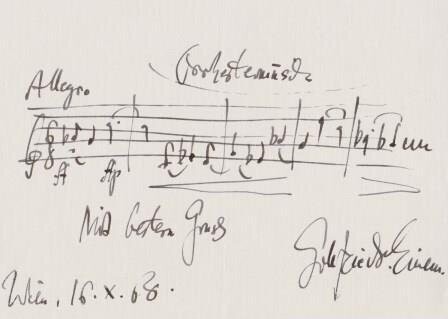 Orchestermusik
Allegro
ff fp
Mit bestem Gruß
Gottfried v. Einem
Wien, 16. X. 68.